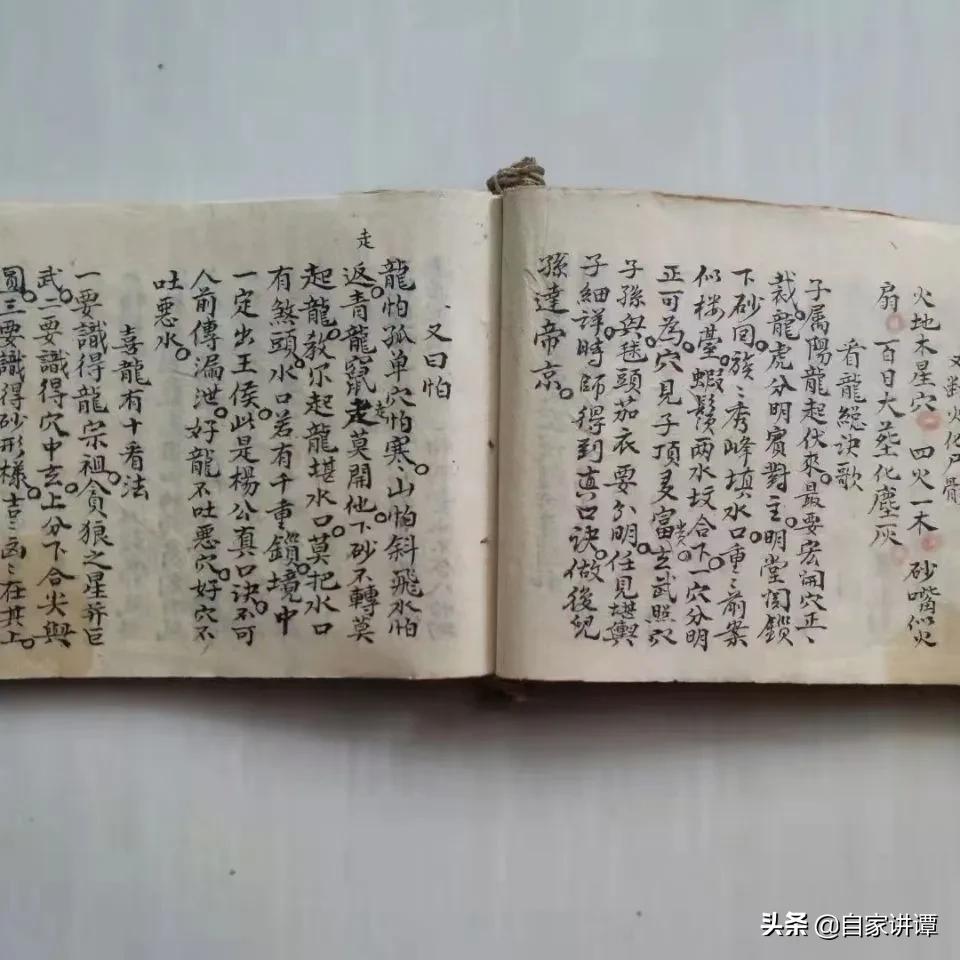 火地木星穴 四火一木 砂嘴似火
扇 百日大葬化塵灰
看龍総诀歌
子属陽龍起伏來。最要宏開穴正、
裁。龍虎分明賓對主。明堂関鎖
下砂回。族〻秀峰填水口。重〻前案
似楼臺。蝦鬚两水坟合下。一穴分明
正可為。穴見子頂多富玄武照穴
子孫與。毬頭茄衣要分明。任見堪輿
子細詳。時師得到真口訣。做後兒
孫達帝京。
又曰怕
龍怕孤单穴怕寒。山怕斜飛水怕
走
返。青龍竄走莫開他。下砂不轉莫
起龍。教尔起龍堪水口。莫把水口
有煞頭。水口若有千重鎖。境中
一定出王侯。此是楊公真口诀。不可
人前傳漏泄。好龍不吐悪穴。好穴不
吐悪水。
喜龍有十看法
一要識得龍宗祖。貪狼之星并巨
武。二要識得穴中玄。上分下合尖與
圓。三要識得砂形樣。吉〻凶〻在其上。
头条 @自家讲谭